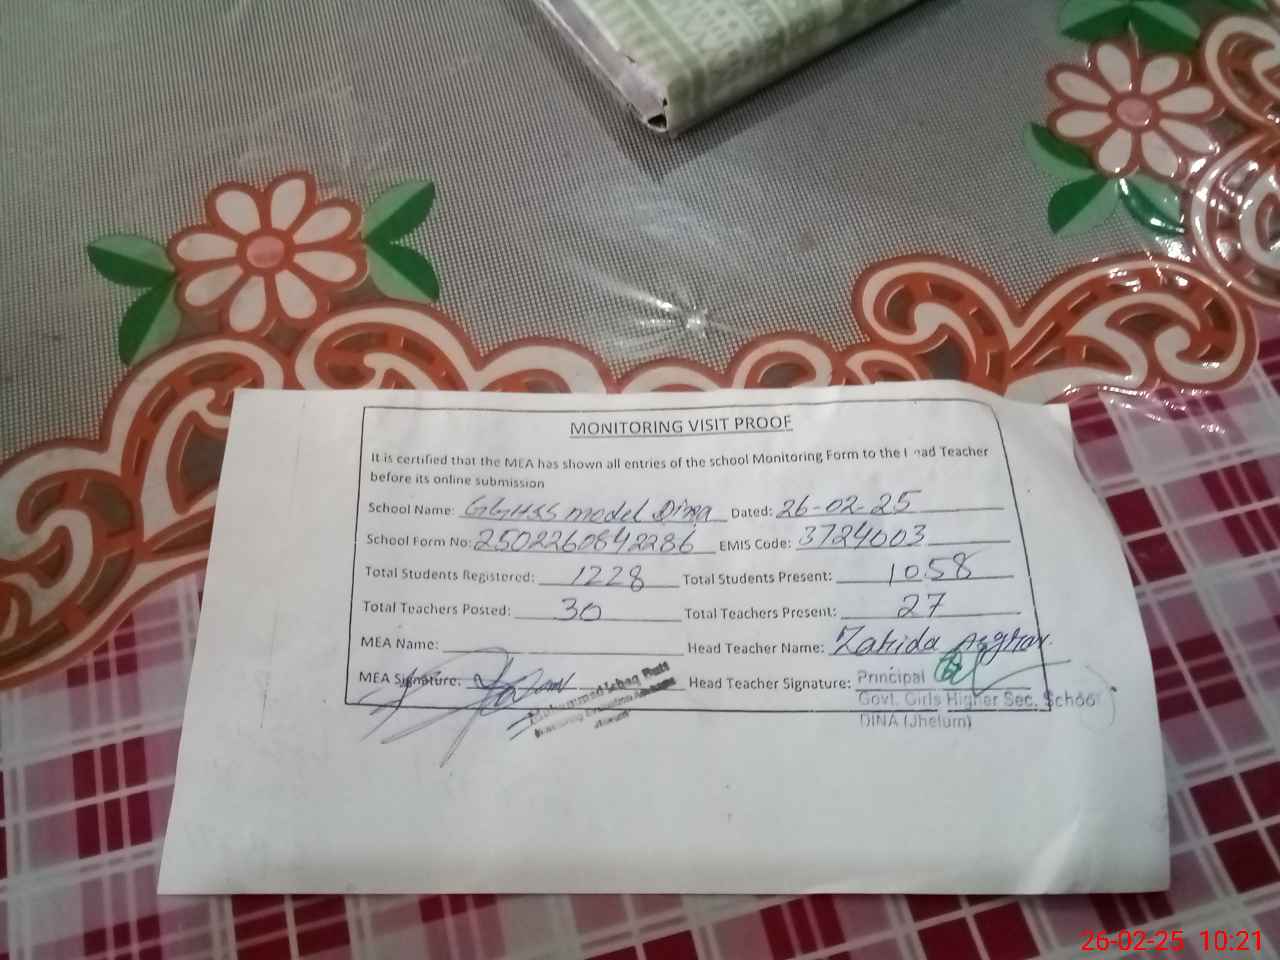 MONITORING VISIT PROOF
It is certified that the MEA has shown all entries of the school Monitoring Form to the Head Teacher
before its online submission
School Name: GGHSS model Dina Dated: 26-02-25
School Form No: 2502260842286 EMIS Code: 3724003
Total Students Registered: 1228 Total Students Present: 1058
Total Teachers Posted: 30 Total Teachers Present: 27
MEA Name: Head Teacher Name: Zahida
MEA Signature: Head Teacher Signature:
Muhammad Ishaq Butt
Monitoring Evaluation
Principal
Govt. Girls Higher Sec. School
DINA (Jhelum)
26-02-25 10:21